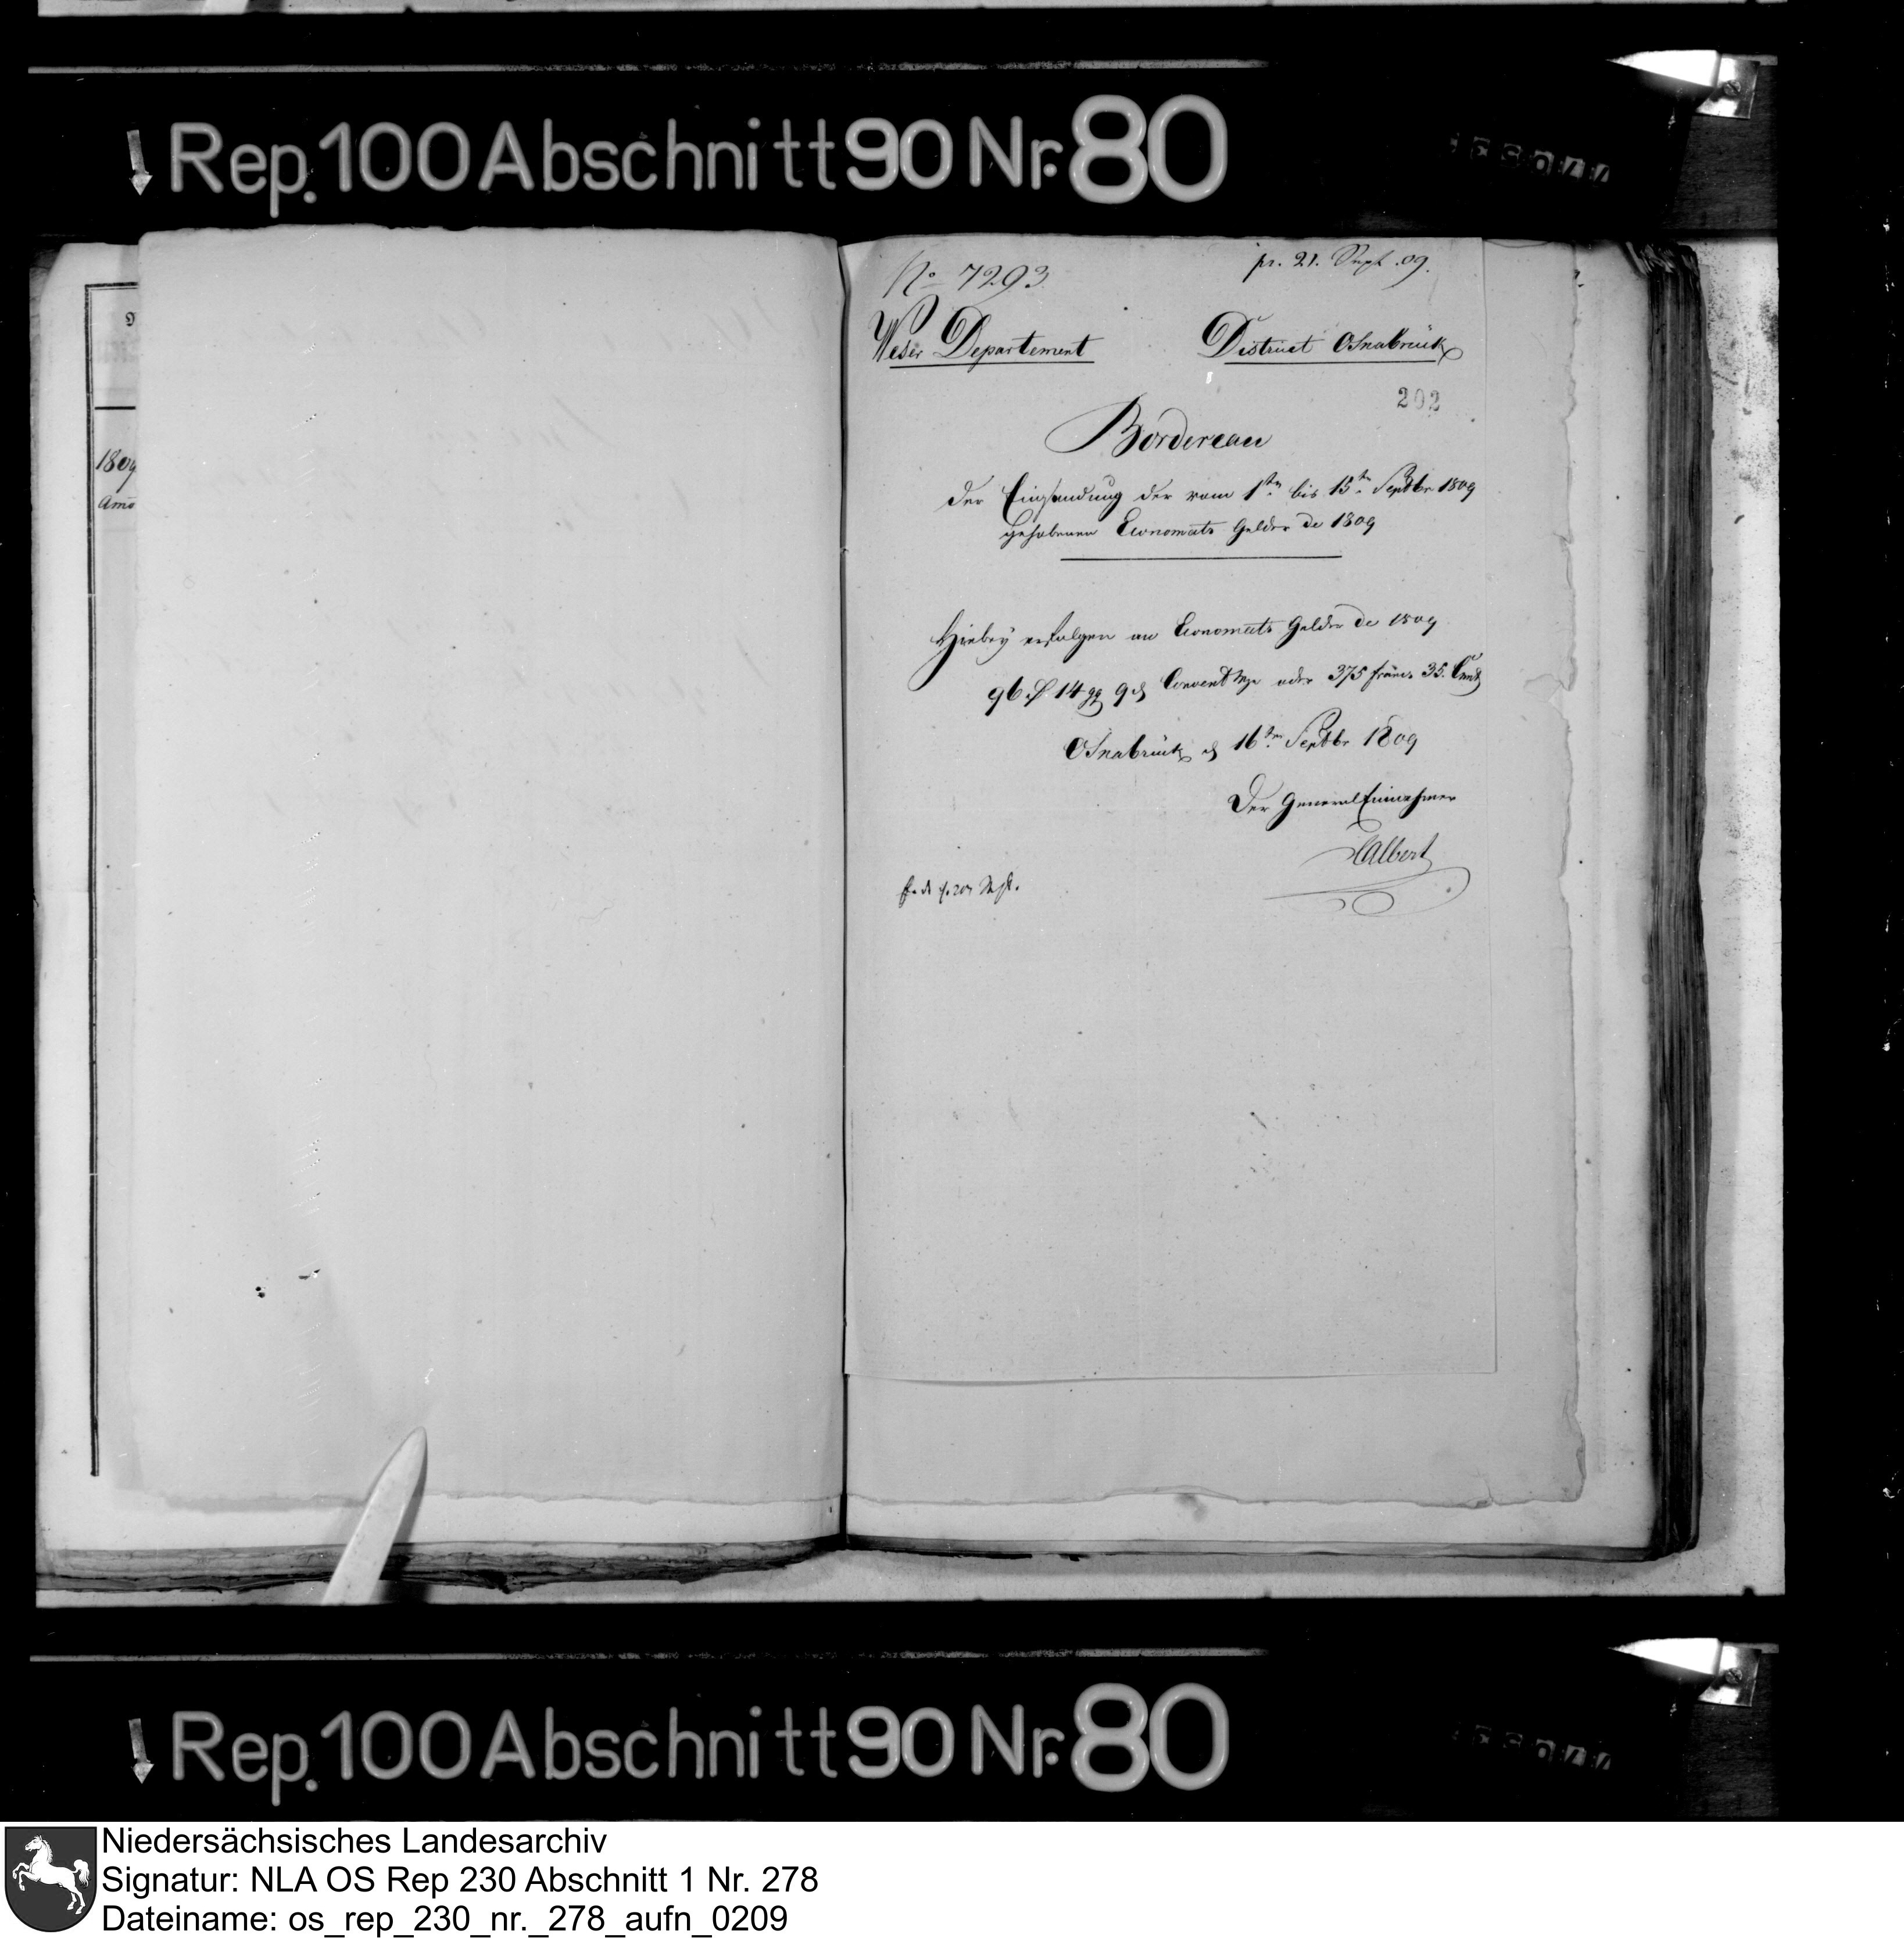 Rep. 100 Abschnitt 90 Nr. 80
1809
No 7293
pr. 21. Sept. 09.
Weser Departement
District Osnabrück
202
Bordereau
der Einsendung der vom 1ten bis 15ten Septbr 1809
gehobenen Economats Gelder de 1809
Hiebey erfolgen an Economats Gelder de 1809
96 Rthl 14 gg 9 d Convent Mze oder 375 franc 35. Cent
Osnabrück d 16ten Septbr 1809
Der General Einnehmer
Albert
Rep. 100 Abschnitt 90 Nr. 80
Niedersächsisches Landesarchiv
Signatur: NLA OS Rep 230 Abschnitt 1 Nr. 278
Dateiname: os_rep_230_nr._278_aufn_0209